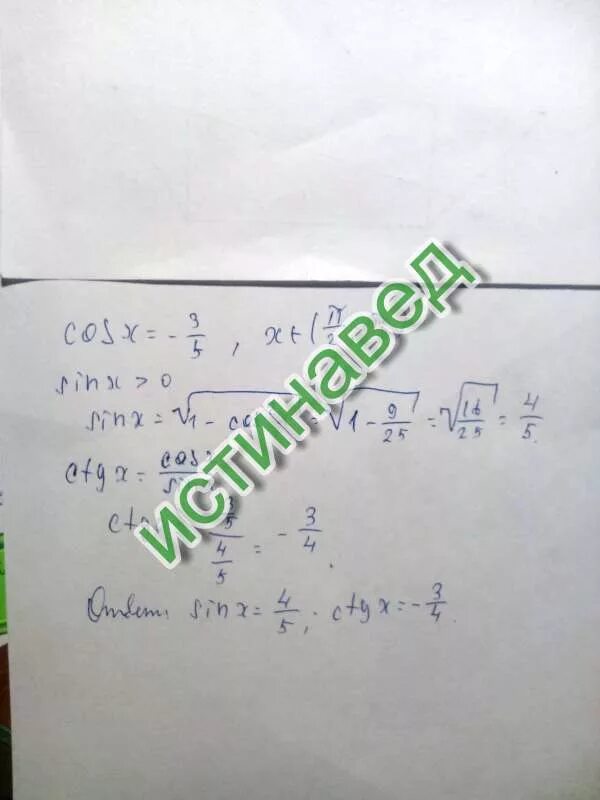 cos x = - 3/5 , x ∈ ( π/2
sin x > 0
sin x = √1 - co = √1 - 9/25 = √16/25 = 4/5.
ctg x = cos
3/5 / 4/5 = - 3/4.
Ответ: sin x = 4/5; ctg x = - 3/4.
истинавед